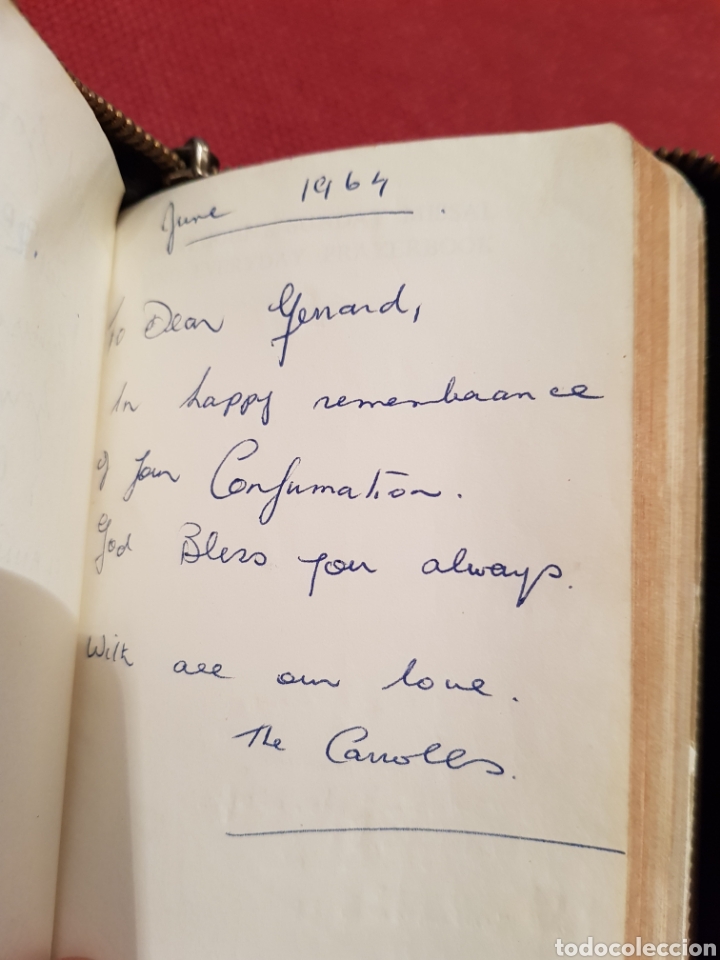 June 1964
To Dear Gerrard,
In happy remembrance
of your Confirmation.
God Bless you always.
With all our love.
The Carrolls.
todocoleccion